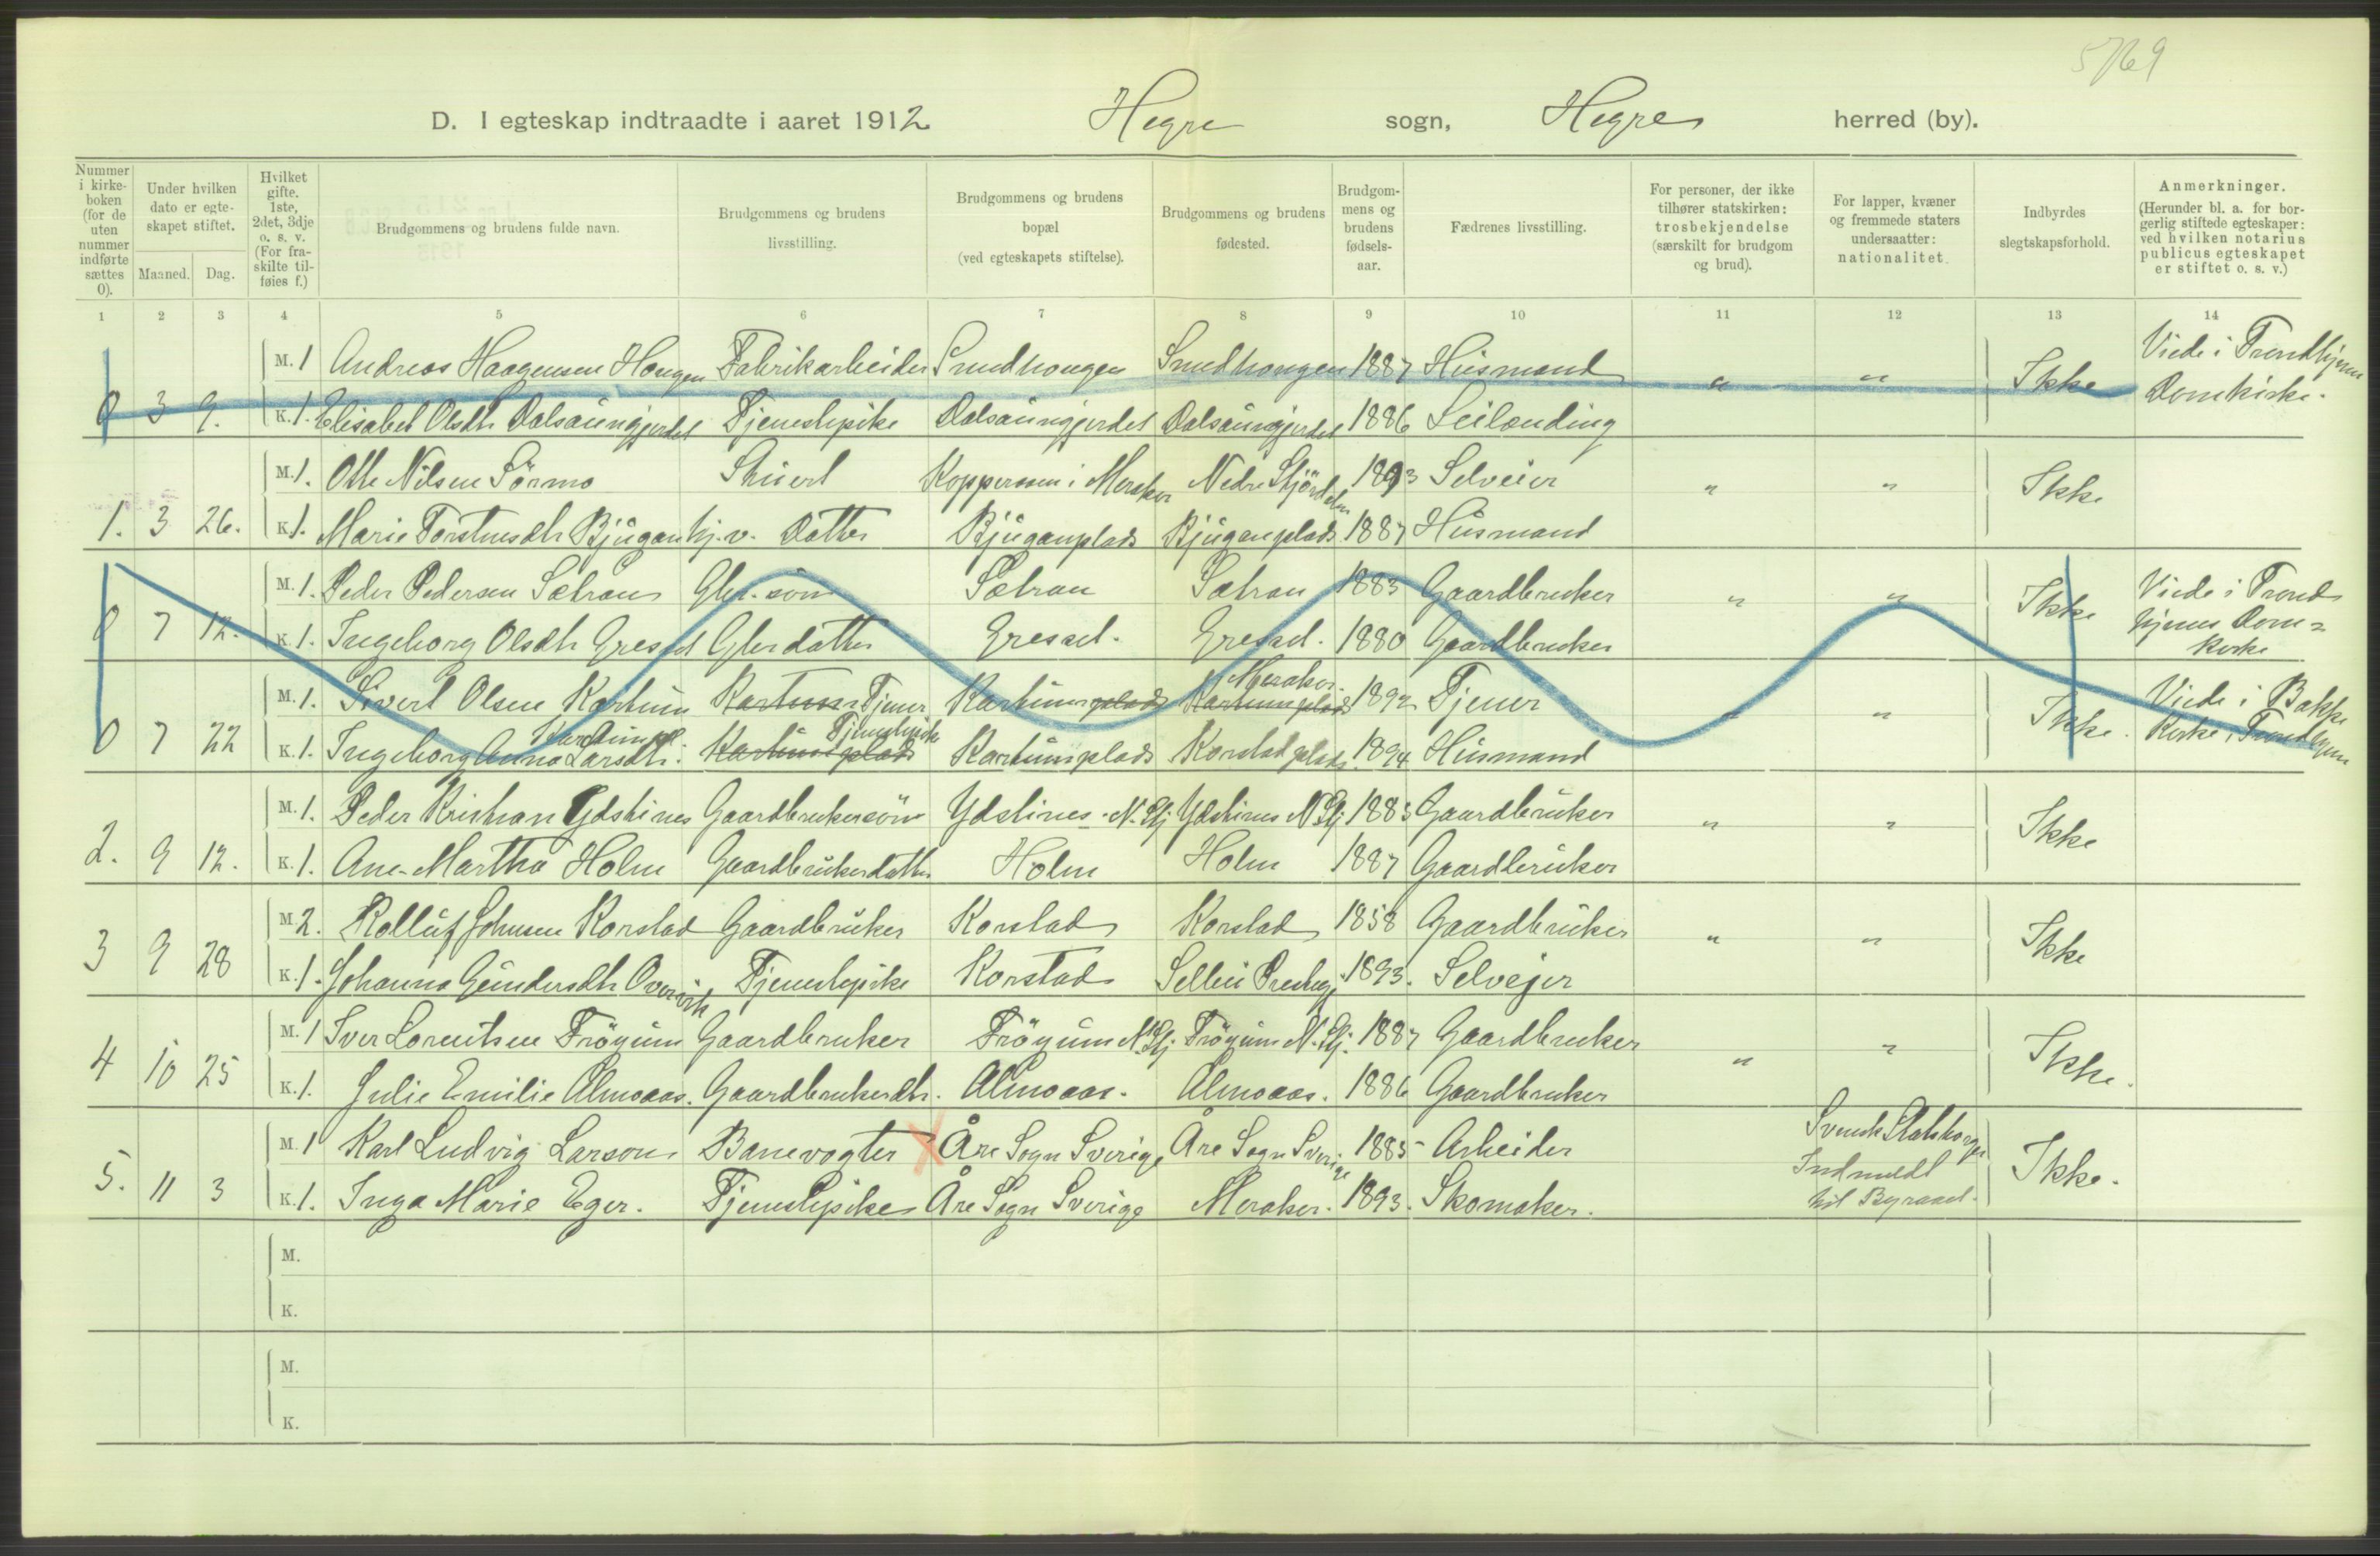 5769
D. I egteskap indtraadte i aaret 1912 Hegre sogn, Hegre herred (by).
Nummer i kirkeboken (for de uten nummer indførte sættes 0).
Under hvilken dato er egteskapet stiftet.
Maaned. Dag.
Hvilket gifte. 1ste, 2det, 3dje o. s. v. (For fraskilte tilføies f.)
Brudgommens og brudens fulde navn.
Brudgommens og brudens livsstilling.
Brudgommens og brudens bopæl (ved egteskapets stiftelse).
Brudgommens og brudens fødested.
Brudgommens og brudens fødselsaar.
Fædrenes livsstilling.
For personer, der ikke tilhører statskirken: trosbekjendelse (særskilt for brudgom og brud).
For lapper, kvæner og fremmede staters undersaatter: nationalitet.
Indbyrdes slegtskapsforhold.
Anmerkninger. (Herunder bl. a. for borgerlig stiftede egteskaper: ved hvilken notarius publicus egteskapet er stiftet o. s. v.)
1 2 3 4 5 6 7 8 9 10 11 12 13 14
M. 1 Andreas Haagensen Hougen Fabrikarbeider 1887 Husmand Viede i Trondhjems
0 3 9. K. 1. Elisabet Olsdtr Dalsaungjerdet Tjenestepike Dalsaungjerdet Dalsaungjerdet 1886 Leilænding " " Ikke Domkirke.
M. 1. Otte Nilsen Sörmo Stuert Kopperaaen i Meraker Nedre Stjördalen 1893 Selveier
1. 3 26. K. 1. Marie Torstensdtr Bjugan hj. v. Datter Bjuganplads Bjuganplads 1887 Husmand " " Ikke
M. 1. Peder Pedersen Sætran Gbr. sön Sætran Sætran 1883 Gaardbruker Viede i Trond
0 7 12. K. 1. Ingeborg Olsdtr Gressel Gbr datter Gressel. Gressel. 1880 Gaardbruker " " Ikke hjems Dom= kirke
M. 1. Sivert Olsen Kartum Kartum Tjener Kartumsplads Kartumplads Meraker. 1892 Tjener Viede i Bakke
0 7 22 K. 1. Ingeborg Anna Larsdtr. Kartumpl Kartumsplads Tjenestepike Kartumsplads Korstadplads 1894 Husmand " " Ikke. Kirke i Trondhjem
M. 1. Peder Kristian Ydstines Gaardbrukersön Ydstines. N. Stj Ydstines N. Stj. 1883 Gaardbruker
2. 9 12. K. 1. Ane-Martha Holm Gaardbrukerdatter Holm Holm 1887 Gaardbruker " " Ikke
M. 2. Rolluf Johnsen Korstad Gaardbruker Korstad Korstad 1858 Gaardbruker
3 9 28 K. 1. Johanna Gundersdtr Overvik Tjenestepike Korstad Selbu Prestegj. 1893. Selvejer " " Ikke
M. 1 Iver Lorentsen Fröyum Gaardbruker Fröyum N. Stj. Fröyum N. Stj. 1887 Gaardbruker
4 10 25 K. 1. Julie Emilie Almoaas. Gaardbrukerdtr. Almoaas. Almoaas. 1886 Gaardbruker " " Ikke.
M. 1 Karl Ludvig Larson Banevogter Åre Sogn Sverige Åre Sogn Sverige 1885 Arbeider Svensk Statsborger
5. 11 3 K. 1. Inga Marie Eger. Tjenestepike Åre Sogn Sverige Meraker. 1893. Skomaker. Indmeldt til Byraaet. Ikke.
M.
K.
M.
K.